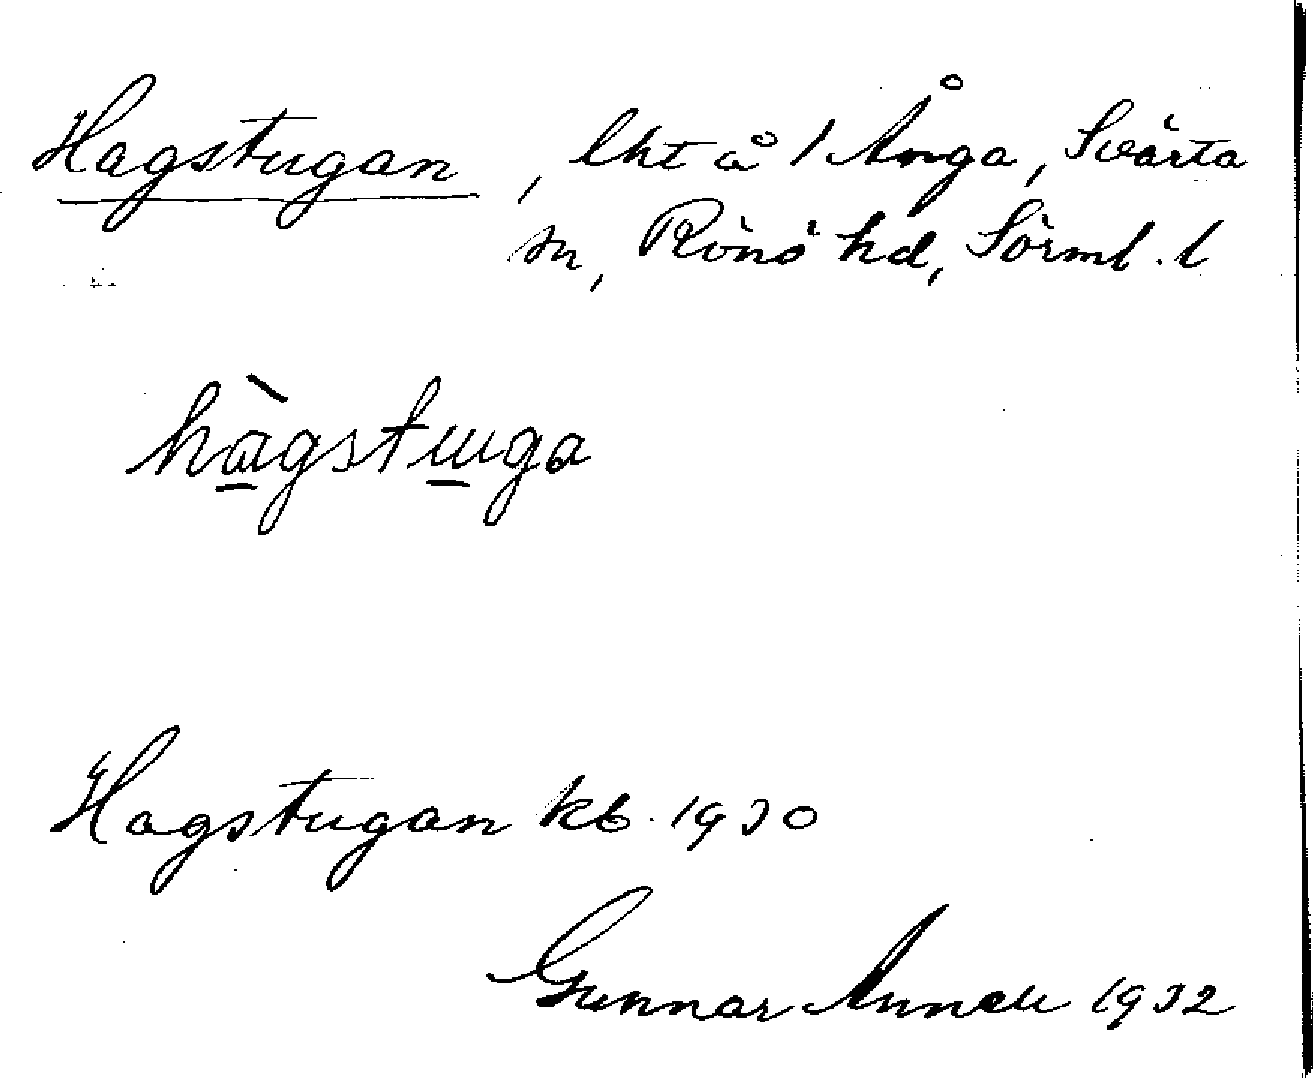 Hagstugan, lht å 1 Ånga, Svärta
sn, Rönö hd, Sörml. l
hàgstuga
Hagstugan kb. 1930
Gunnar 1932